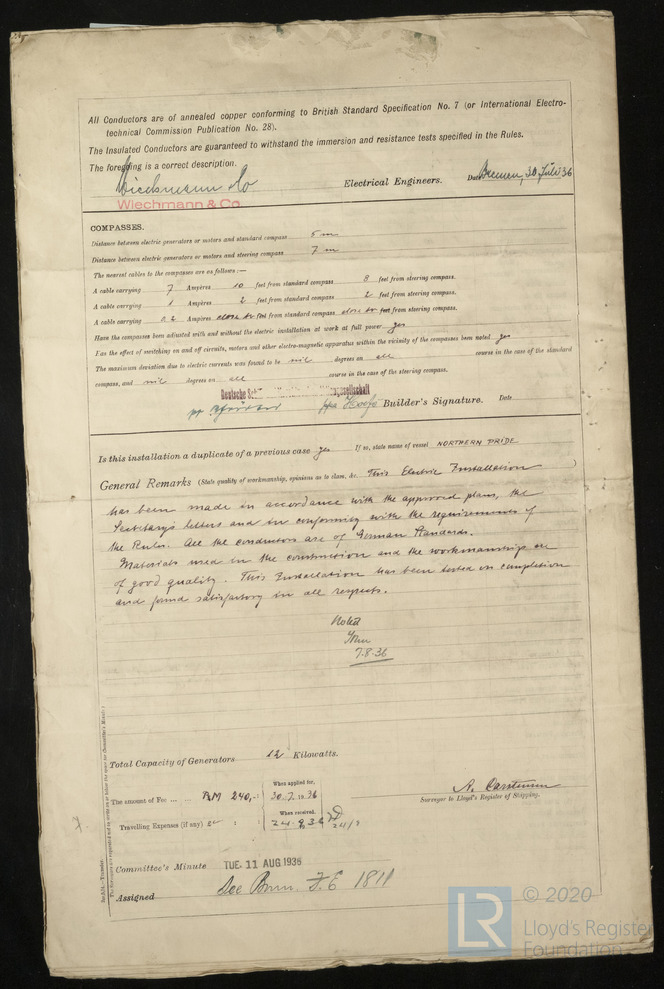 All Conductors are of annealed copper conforming to British Standard Specification No. 7 (or International Electro-
technical Commission Publication No. 28).
The Insulated Conductors are guaranteed to withstand the immersion and resistance tests specified in the Rules.
The foregoing is a correct description.
Wiechmann & Co Electrical Engineers. Date Bremen, 30 Juli 36
Wiechmann & Co.
COMPASSES.
Distance between electric generators or motors and standard compass 5 m
Distance between electric generators or motors and steering compass 7 m
The nearest cables to the compasses are as follows:—
A cable carrying 7 Ampères 10 feet from standard compass 8 feet from steering compass.
A cable carrying 1 Ampères 2 feet from standard compass 2 feet from steering compass.
A cable carrying 0.2 Ampères close to feet from standard compass close to feet from steering compass.
Have the compasses been adjusted with and without the electric installation at work at full power yes
Has the effect of switching on and off circuits, motors and other electro-magnetic apparatus within the vicinity of the compasses been noted yes
The maximum deviation due to electric currents was found to be nil degrees on all course in the case of the standard
compass, and nil degrees on all course in the case of the steering compass.
Deutsche
ppa Builder's Signature. Date
Is this installation a duplicate of a previous case yes If so, state name of vessel NORTHERN PRIDE
General Remarks (State quality of workmanship, opinions as to class, &c. This Electric Installation )
has been made in accordance with the approved plans, the
Secretary's letters and in conformity with the requirements of
the Rules. All the conductors are of German Standards.
Materials used in the construction and the workmanship are
of good quality. This Installation has been tested on completion
and found satisfactory in all respects.
Noted
7.8.36
Total Capacity of Generators 12 Kilowatts.
A. Carstensen
Surveyor to Lloyd's Register of Shipping.
When applied for,
The amount of Fee ... ... RM 240,-: 30.7.1936
When received,
Travelling Expenses (if any) £ : : 24.9.36 24/9
Committee's Minute TUE. 11 AUG 1936
Assigned See Brm. F.E 1811
LR © 2020
Lloyd's Register
Foundation